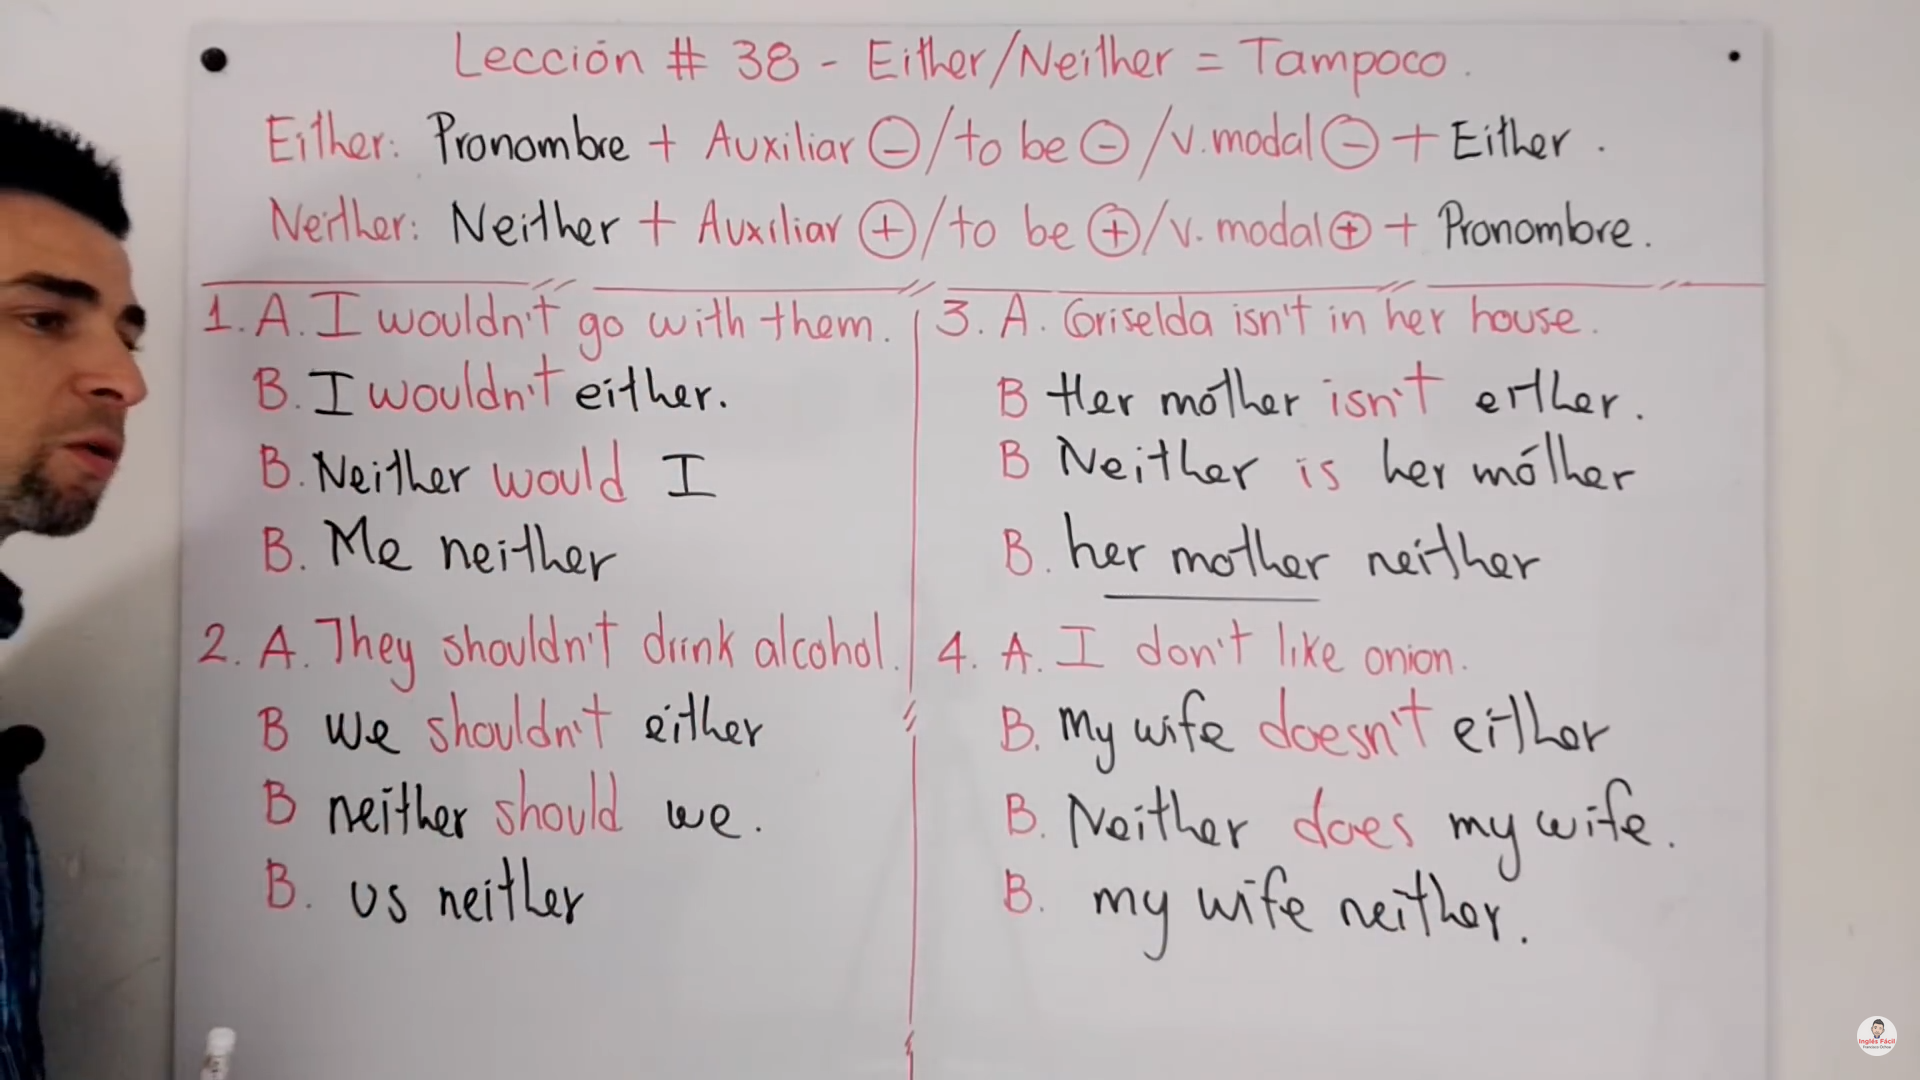 Lección # 38 - Either/Neither = Tampoco.
Either: Pronombre + Auxiliar ⊖/to be ⊖/v.modal ⊖ + Either.
Neither: Neither + Auxiliar ⊕/to be ⊕/v. modal ⊕ + Pronombre.
1. A. I wouldn't go with them.
B. I wouldn't either.
B. Neither would I
B. Me neither
2. A. They shouldn't drink alcohol.
B we shouldn't either
B neither should we.
B. us neither
3. A. Griselda isn't in her house.
B Her mother isn't either.
B Neither is her mother
B. her mother neither
4. A. I don't like onion.
B. my wife doesn't either
B. Neither does my wife.
B. my wife neither.
Inglés Fácil